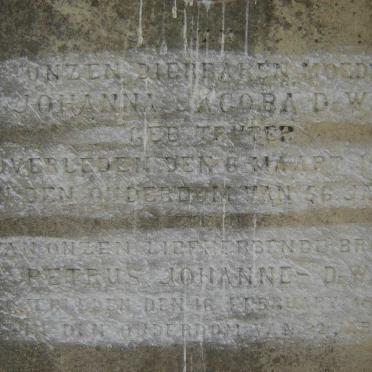 ONZEN DIERBAREN MOED
JOHANNA JACOBA D. W
GEB.
OVERLEDEN DEN 6 MAART
DEN OUDERDOM VAN 56 J
VAN ONZEN LIEFHEBBENDE BR
PETRUS JOHANNE- D. W
OVERLEDEN DEN 16 FEBRUARY
DEN OUDERDOM VAN 22